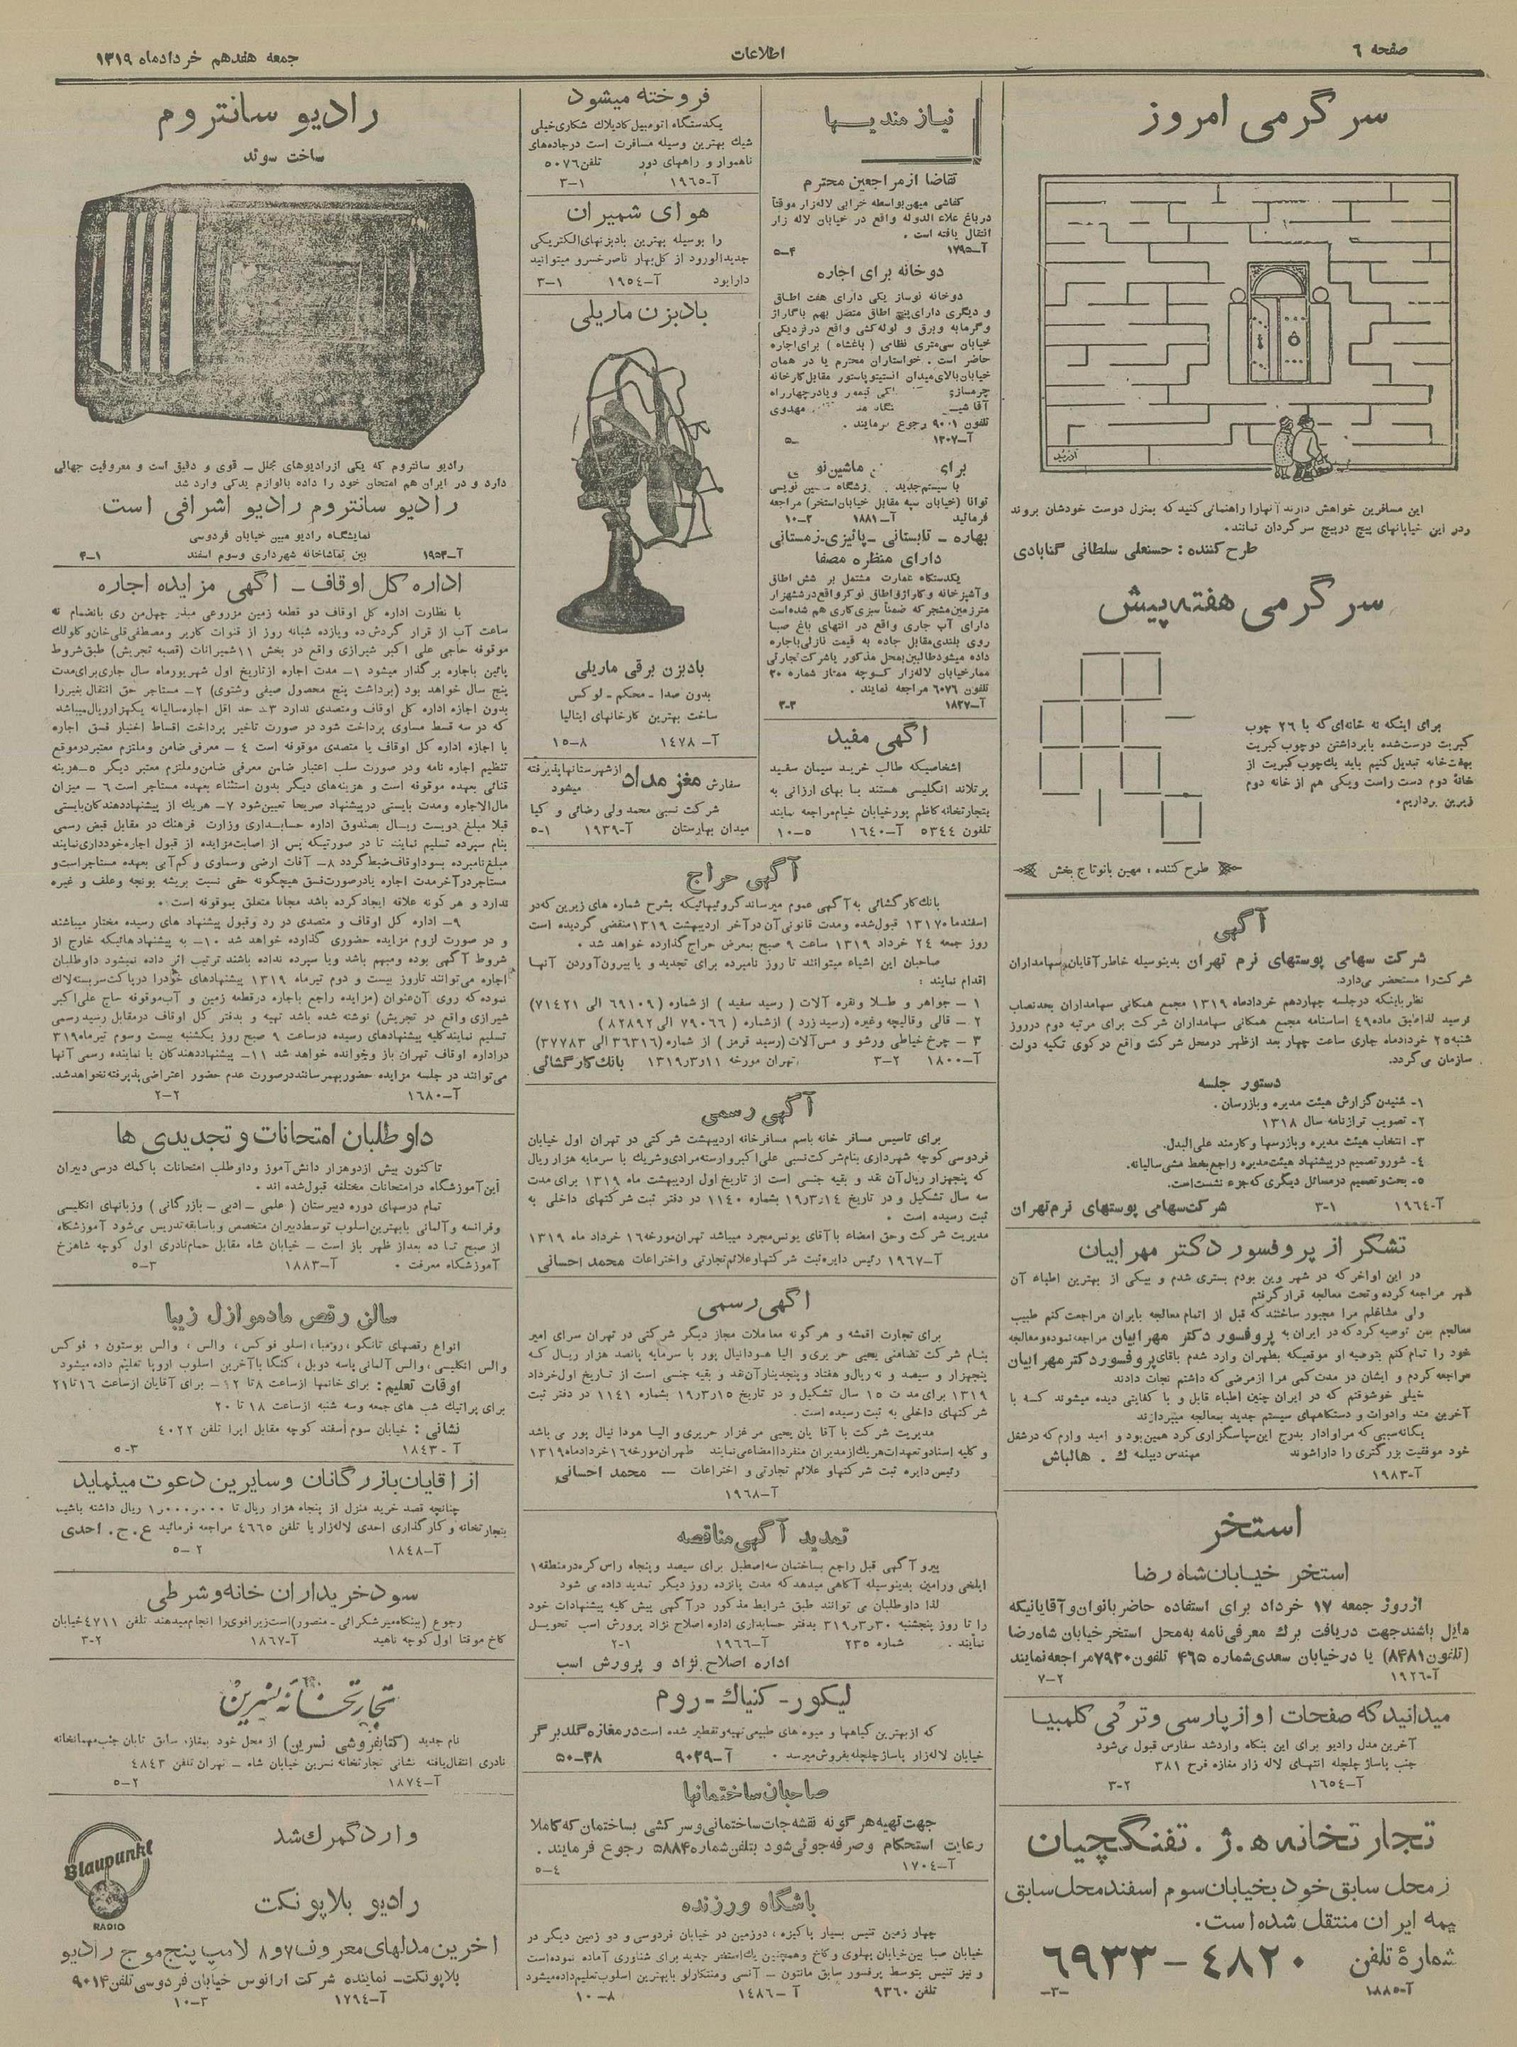 صفحه ٦
اطلاعات
جمعه هفدهم خردادماه ۱۳۱۹
سرگرمی امروز
این مسافرین خواهش دارند آنها را راهنمائی کنید که بمنزل دوست خودشان بروند
و در این خیابانهای پیچ در پیچ سرگردان نمانند.
طرح کننده : حسنعلی سلطانی گنابادی
سرگرمی هفته پیش
برای اینکه نه خانه‌ای که با ۲۶ چوب
کبریت درست شده با برداشتن دو چوب کبریت
بهفت خانه تبدیل کنیم باید یک چوب کبریت از
خانهٔ دوم دست راست و یکی هم از خانه دوم
زیرین برداریم.
طرح کننده : مهین بانو تاج بخش
آگهی
شرکت سهامی پوستهای نرم تهران بدینوسیله خاطر آقایان سهامداران
شرکت را مستحضر می‌دارد.
نظر باینکه در جلسه چهاردهم خردادماه ۱۳۱۹ مجمع همگانی سهامداران بحد نصاب
نرسید لذا طبق ماده ٤٩ اساسنامه مجمع همگانی سهامداران شرکت برای مرتبه دوم در روز
شنبه ۲۵ خردادماه جاری ساعت چهار بعد از ظهر در محل شرکت واقع در کوی تکیه دولت
سازمان می‌گردد.
دستور جلسه
۱- شنیدن گزارش هیئت مدیره و بازرسان .
۲- تصویب ترازنامه سال ۱۳۱۸
۳- انتخاب هیئت مدیره و بازرسها و کارمند علی‌البدل.
٤- شور و تصمیم در پیشنهاد هیئت مدیره راجع بخط مشی سالیانه.
٥- بحث و تصمیم در مسائل دیگری که جزء نشست است.
آ-۱۹٦٤ ۳-۱ شرکت سهامی پوستهای نرم تهران
تشکر از پروفسور دکتر مهرابیان
در این اواخر که در شهر وین بودم بستری شدم و بیکی از بهترین اطباء آن
شهر مراجعه کرده و تحت معالجه قرار گرفتم
ولی مشاغلم مرا مجبور ساختند که قبل از اتمام معالجه بایران مراجعت کنم طبیب
معالجم بمن توصیه کرد که در ایران به پروفسور دکتر مهرابیان مراجعه نموده و معالجه
خود را تمام کنم بتوصیه او موقعیکه بطهران وارد شدم باقای پروفسور دکتر مهرابیان
مراجعه کردم و ایشان در مدت کمی مرا از مرضی که داشتم نجات دادند
خیلی خوشوقتم که در ایران چنین اطباء قابل و با کفایتی دیده میشوند که با
آخرین متد و ادوات و دستگاههای سیستم جدید بمعالجه میپردازند
یگانه سببی که مرا وادار بدرج این سپاسگزاری کرد همین بود و امید وارم که در شغل
خود موفقیت بزرگتری را دارا شوند مهندس دیپلمه ک. هالباش
آ-۱۹۸۳
استخر
استخر خیابان شاه رضا
از روز جمعه ۱۷ خرداد برای استفاده حاضر بانوان و آقایانیکه
مایل باشند جهت دریافت برگ معرفی نامه به محل استخر خیابان شاه رضا
(تلفون ۸۴۸۱) یا در خیابان سعدی شماره ۴۶۵ تلفون ۷۹۳۰ مراجعه نمایند
آ-۱۹۲٦ ۷-۲
میدانید که صفحات اواز پارسی و ترکی کلمبیا
آخرین مدل رادیو برای این بنگاه وارد شد سفارس قبول می‌شود
جنب پاساژ چلچله انتهای لاله زار مغازه فرح ۳۸۱
آ-۱٦٥٤ ۳-۲
تجارتخانه ه.ژ. تفنگچیان
ز محل سابق خود بخیابان سوم اسفند محل سابق
بیمه ایران منتقل شده است.
شمارهٔ تلفن ٤۸۲۰ - ٦۹۳۳
آ-۱۸۸٥ -۳-
نیازمندیها
تقاضا از مراجعین محترم
کفاشی میهن بواسطه خرابی لاله زار موقتاً
در باغ علاء الدوله واقع در خیابان لاله زار
انتقال یافته است .
آ-۱۷۹٥ ۴-٥
دو خانه برای اجاره
دو خانه نوساز یکی دارای هفت اطاق
و دیگری دارای پنج اطاق متصل بهم با گاراژ
و گرمابه و برق و لوله کشی واقع در نزدیکی
خیابان سی متری نظامی ( باغشاه ) برای اجاره
حاضر است . خواستاران محترم یا در همان
خیابان بالای میدان انستیتو پاستور مقابل کارخانه
چرمسازی قیصر و یا در چهارراه
مهدوی
تلفون ۹۰۰۱ رجوع فرمایند .
آ-۱۳۰۷
برای ماشین نو
با سیستم جدید نویسی
توانا (خیابان سپه مقابل خیابان استخر) مراجعه
فرمائید آ-۱۸۸۱ ۲-۱۰
بهاره - تابستانی - پائیزی - زمستانی
دارای منظره مصفا
یکدستگاه عمارت مشتمل بر شش اطاق
و آشپزخانه و گاراژ و اطاق نوکر واقع در ششهزار
متر زمین مشجر که ضمناً سبزی کاری هم شده است
دارای آب جاری واقع در انتهای باغ صبا
روی بلندی مقابل جاده به قیمت نازلی باجاره
داده میشود طالبین بمحل مذکور یا شرکت تجارتی
ممتاز خیابان لاله‌زار کوچه ممتاز شماره ۲۰
تلفون ٦۰۷٦ مراجعه نمایند .
آ-۱۸۲۷ ۳-۳
آگهی مفید
اشخاصیکه طالب خرید سیمان سفید
پرتلاند انگلیسی هستند با بهای ارزانی به
بتجارتخانه کاظم پور خیابان خیام مراجعه نمایند
تلفون ٥٣٤٤ آ-۱٦٤۰ ٥-۱۰
فروخته میشود
یکدستگاه اتومبیل کادیلاک شکاری خیلی
شیک بهترین وسیله مسافرت است در جاده‌های
ناهموار و راههای دور تلفن ٥۰۷٦
آ-۱۹٦٥ ۳-۱
هوای شمیران
را بوسیله بهترین بادبزنهای الکتریکی
جدیدالورود از کل‌بهار ناصرخسرو میتوانید
دارا بود آ-۱۹٥٤ ۳-۱
بادبزن ماریلی
بادبزن برقی ماریلی
بدون صدا - محکم - لوکس
ساخت بهترین کارخانهای ایتالیا
آ-۱٤٧٨ ۸-۱٥
سفارش مغز مداد از شهرستانها پذیرفته میشود
شرکت نسبی محمد ولی رضائی و کیا
میدان بهارستان آ-۱۹۳۹ ۱-٥
آگهی حراج
بانک کارگشائی به آگهی عموم میرساند گروئیهائیکه بشرح شماره های زیرین که در
اسفندماه ۱۳۱۷ قبول شده و مدت قانونی آن در آخر اردیبهشت ۱۳۱۹ منقضی گردیده است
روز جمعه ۲٤ خرداد ۱۳۱۹ ساعت ۹ صبح بمعرض حراج گذارده خواهد شد .
صاحبان این اشیاء میتوانند تا روز نامبرده برای تجدید و یا بیرون آوردن آنها
اقدام نمایند :
۱ - جواهر و طلا و نقره آلات ( رسید سفید ) از شماره ( ٦۹۱۰۹ الی ۷۱٤۲۱)
۲ - قالی و قالیچه وغیره (رسید زرد ) از شماره ( ۷۹۰٦٦ الی ۸۲۸۹۲ )
۳ - چرخ خیاطی و رشو و مس‌آلات (رسید قرمز ) از شماره (۳٦۳۱٦ الی ۳۷۷۸۳)
آ-۱۸۰۰ ۳-۲ تهران مورخه ۱۳۱۹ر۳ر۱۱ بانک کارگشائی
آگهی رسمی
برای تاسیس مسافر خانه باسم مسافرخانه اردیبهشت شرکتی در تهران اول خیابان
فردوسی کوچه شهرداری بنام شرکت نسبی علی‌اکبر وارسته مرادی و شریک با سرمایه هزار ریال
که پنجهزار ریال آن نقد و بقیه جنسی است از تاریخ اول اردیبهشت ماه ۱۳۱۹ برای مدت
سه سال تشکیل و در تاریخ ۱٤ر۳ر۱۹ بشماره ۱۱٤۰ در دفتر ثبت شرکتهای داخلی به
ثبت رسیده است .
مدیریت شرکت و حق امضاء با آقای یونس مجرد میباشد تهران مورخه ۱٦ خرداد ماه ۱۳۱۹
آ-۱۹٦۷ رئیس دایره ثبت شرکتها و علائم تجارتی و اختراعات محمد احسانی
آگهی رسمی
برای تجارت اقمشه و هرگونه معاملات مجاز دیگر شرکتی در تهران سرای امیر
بنام شرکت تضامنی یحیی حریری و الیا هودانیال پور با سرمایه پانصد هزار ریال که
پنجهزار و سیصد و نه ریال و هفتاد و پنجدینار آن نقد و بقیه جنسی است از تاریخ اول خرداد
۱۳۱۹ برای مدت ۱٥ سال تشکیل و در تاریخ ۱٥ر۳ر۱۹ بشماره ۱۱٤۱ در دفتر ثبت
شرکتهای داخلی به ثبت رسیده است .
مدیریت شرکت با آقایان یحیی مرغزار حریری و الیا هودا نیال پور می باشد
و کلیه اسناد و تعهدات هر یک از مدیران منفرداً امضاء می‌نمایند طهران مورخه ۱٦ خرداد ماه ۱۳۱۹
رئیس دایره ثبت شرکتها و علائم تجارتی و اختراعات - محمد احسانی
آ-۱۹٦۸
تمدید آگهی مناقصه
پیرو آگهی قبل راجع بساختمان سه اصطبل برای سیصد و پنجاه راس کره در منطقه ۱
ایلخی ورامین بدینوسیله آگاهی میدهد که مدت پانزده روز دیگر تمدید داده می شود
لذا داوطلبان می توانند طبق شرایط مذکور در آگهی پیش کلیه پیشنهادات خود
را تا روز پنجشنبه ۳۰ر۳ر۳۱۹ بدفتر حسابداری اداره اصلاح نژاد پرورش اسب تحویل
نمایند . شماره ۲۳٥ آ-۱۹٦٦ ۲-۱
اداره اصلاح نژاد و پرورش اسب
لیکور - کنیاک - روم
که از بهترین گیاهها و میوه های طبیعی تهیه و تقطیر شده است در مغازه گلدبرگر
خیابان لاله‌زار پاساژ چلچله بفروش میرسد . آ-۹۰۲۹ ۳۸-٥۰
صاحبان ساختمانها
جهت تهیه هرگونه نقشه جات ساختمانی و سرکشی بساختمان که کاملا
رعایت استحکام و صرفه جوئی شود بتلفن شماره ٥۸۸۴ رجوع فرمایند .
آ-۱۷۰٤ ٤-٥
باشگاه ورزنده
چهار زمین تنیس بسیار پاکیزه ، دو زمین در خیابان فردوسی و دو زمین دیگر در
خیابان صبا بین خیابان پهلوی و کاخ و همچنین یک استخر جدید برای شناوری آماده نموده است
و نیز تنیس بتوسط پرفسور سابق مانتون - آنسی و منتکارلو با بهترین اسلوب تعلیم داده میشود
تلفن ۹۳٦۰ آ-۱٤۸٦ ۸-۱۰
رادیو سانتروم
ساخت سوئد
رادیو سانتروم که یکی از رادیوهای مجلل - قوی و دقیق است و معروفیت جهانی
دارد و در ایران هم امتحان خود را داده با لوازم یدکی وارد شد
رادیو سانتروم رادیو اشرافی است
نمایشگاه رادیو مبین خیابان فردوسی
آ-۱۹٥۳ بین تماشاخانه شهرداری و سوم اسفند ۱-۴
اداره کل اوقاف - آگهی مزایده اجاره
با نظارت اداره کل اوقاف دو قطعه زمین مزروعی مبذر چهل من ری بانضمام نه
ساعت آب از قرار گردش ده و یازده شبانه روز از قنوات کاریر و مصطفی قلی خان و کلوک
موقوفه حاجی علی اکبر شیرازی واقع در بخش ۱۱ شمیرانات (قصبه تجریش) طبق شروط
پائین باجاره برگذار میشود ۱- مدت اجاره از تاریخ اول شهریورماه سال جاری برای مدت
پنج سال خواهد بود (برداشت پنج محصول صیفی و شتوی) ۲- مستاجر حق انتقال بغیر را
بدون اجازه اداره کل اوقاف و متصدی ندارد ۳- حد اقل اجاره سالیانه یکهزار ریال میباشد
که در سه قسط مساوی پرداخت شود در صورت تاخیر پرداخت اقساط اختیار فسق اجاره
با اجازه اداره کل اوقاف یا متصدی موقوفه است ٤ - معرفی ضامن و ملتزم معتبر در موقع
تنظیم اجاره نامه و در صورت سلب اعتبار ضامن معرفی ضامن و ملتزم معتبر دیگر ٥- هزینه
قنائی بعهده موقوفه است و هزینه‌های دیگر بدون استثناء بعهده مستاجر است ٦ - میزان
مال‌الاجاره و مدت بایستی در پیشنهاد صریحا تعیین شود ۷- هر یک از پیشنهاد دهندگان بایستی
قبلا مبلغ دویست ریال بصندوق اداره حسابداری وزارت فرهنگ در مقابل قبض رسمی
بنام سپرده تسلیم نمایند تا در صورتیکه پس از اصابت مزایده از قبول اجاره خودداری نمایند
مبلغ نامبرده بسود اوقاف ضبط گردد ۸- آفات ارضی و سماوی و کم‌آبی بعهده مستاجر است و
مستاجر در آخر مدت اجاره یا در صورت فسق هیچگونه حقی نسبت بریشه یونجه و علف و غیره
ندارد و هر گونه علاقه ایجاد کرده باشد مجانا متعلق بموقوفه است .
۹- اداره کل اوقاف و متصدی در رد و قبول پیشنهاد های رسیده مختار میباشند
و در صورت لزوم مزایده حضوری گذارده خواهد شد ۱۰- به پیشنهاد هائیکه خارج از
شروط آگهی بوده و مبهم باشد و یا سپرده نداده باشند ترتیب اثر داده نمیشود داوطلبان
اجاره می‌توانند تا روز بیست و دوم تیرماه ۱۳۱۹ پیشنهادهای خود را در پاکت سربسته لاک
نموده که روی آن عنوان (مزایده راجع باجاره دو قطعه زمین و آب موقوفه حاج علی‌اکبر
شیرازی واقع در تجریش) نوشته شده باشد تهیه و بدفتر کل اوقاف در مقابل رسید رسمی
تسلیم نمایند کلیه پیشنهادهای رسیده در ساعت ۹ صبح روز یکشنبه بیست و سوم تیرماه ۳۱۹
در اداره اوقاف تهران باز و خوانده خواهد شد ۱۱- پیشنهاد دهندگان یا نماینده رسمی آنها
می‌توانند در جلسه مزایده حضور بهمرسانند در صورت عدم حضور اعتراضی پذیرفته نخواهد شد.
آ-۱٦۸۰ ۲-۲
داوطلبان امتحانات و تجدیدی ها
تاکنون بیش از دو هزار دانش‌آموز و داوطلب امتحانات با کمک درسی دبیران
این آموزشگاه در امتحانات مختلفه قبول شده اند .
تمام درسهای دوره دبیرستان ( علمی - ادبی - بازرگانی ) و زبانهای انگلیسی
و فرانسه و آلمانی با بهترین اسلوب توسط دبیران متخصص و باسابقه تدریس می‌شود آموزشگاه
از صبح تا ده بعد از ظهر باز است - خیابان شاه مقابل حمام نادری اول کوچه شاهرخ
آموزشگاه معرفت . آ-۱۸۸۳ ۳-٥
سالن رقص مادموازل زیبا
انواع رقصهای تانگو ، رومبا ، اسلو فوکس ، والس ، والس بوستون ، فوکس
والس انگلیسی ، والس آلمانی پاسه دوبل ، کنگا با آخرین اسلوب اروپا تعلیم داده میشود
اوقات تعلیم : برای خانمها از ساعت ۸ تا ۱۲ - برای آقایان از ساعت ۱٦ تا ۲۱
برای پراتیک شب های جمعه و سه شنبه از ساعت ۱۸ تا ۲۰
نشانی : خیابان سوم اسفند کوچه مقابل اپرا تلفن ٤۰۲۲
آ-۱۸٤۳ ۳-٥
از آقایان بازرگانان و سایرین دعوت مینماید
چنانچه قصد خرید منزل از پنجاه هزار ریال تا ۱٫۰۰۰٫۰۰۰ ریال داشته باشید
بتجارتخانه و کارگذاری احدی لاله‌زار یا تلفن ٤٦٦٥ مراجعه فرمائید ع. ج. احدی
آ-۱۸٤۸ ۲-٥
سود خریداران خانه و شرطی
رجوع (ببنگاه میر شکرائی - منصور) است زیرا فوری را انجام میدهند تلفن ٤۷۱۱ خیابان
کاخ موقتا اول کوچه ناهید آ-۱۸٦۷ ۲-۳
تجارتخانه نسرین
نام جدید (کتابفروشی نسرین) از محل خود بمغازه سابق تابان جنب مهمانخانه
نادری انتقال یافته نشانی تجارتخانه نسرین خیابان شاه - تهران تلفن ٤۸٤۳
آ-۱۸۷٤ ۲-٥
وارد گمرک شد
Blaupunkt
RADIO
رادیو بلاپونکت
آخرین مدلهای معروف ۷ و ۸ لامپ پنج موج رادیو
بلاپونکت - نماینده شرکت ارانوس خیابان فردوسی تلفن ۹۰۱۴
آ-۱۷۹٤ ۳-۱۰